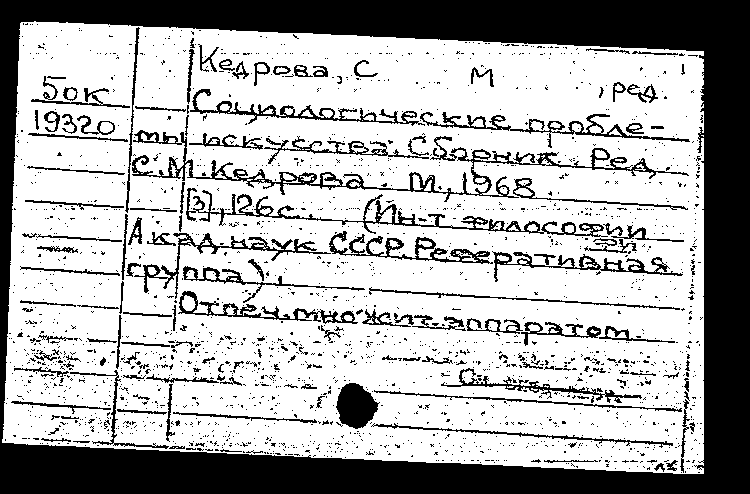 Кедрова, С М , ред.
50к
19320
Социологические пробле-
мы искусства. Сборник. Ред.
С.М.Кедрова. М., 1968.
[3], 126с. (Ин-т философии
Акад. наук СССР. Реферативная
группа).
Отпеч. множит. аппаратом.